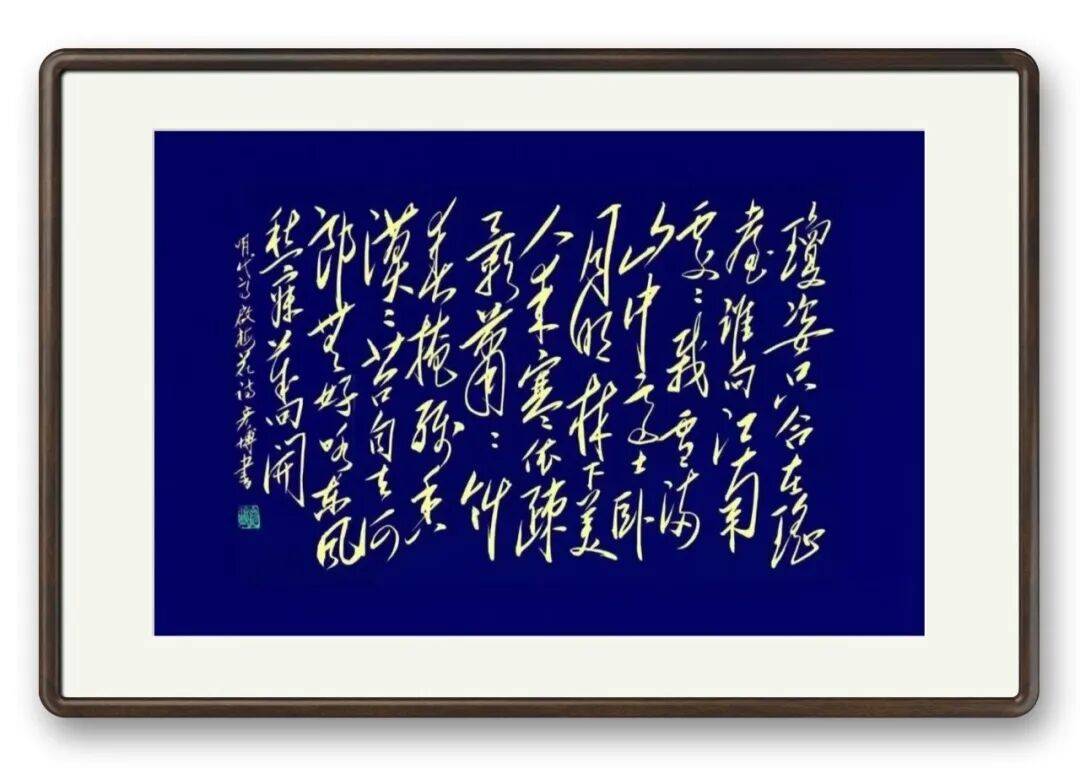 瓊姿只合在瑤
臺誰向江南
處〻栽雪滿
山中高士卧
月明林下美
人來寒依疎
影蕭〻竹
春掩殘香
漠〻苔自去何
郎無好咏東風
愁寂幾回開
明代高啟梅花詩彦博書